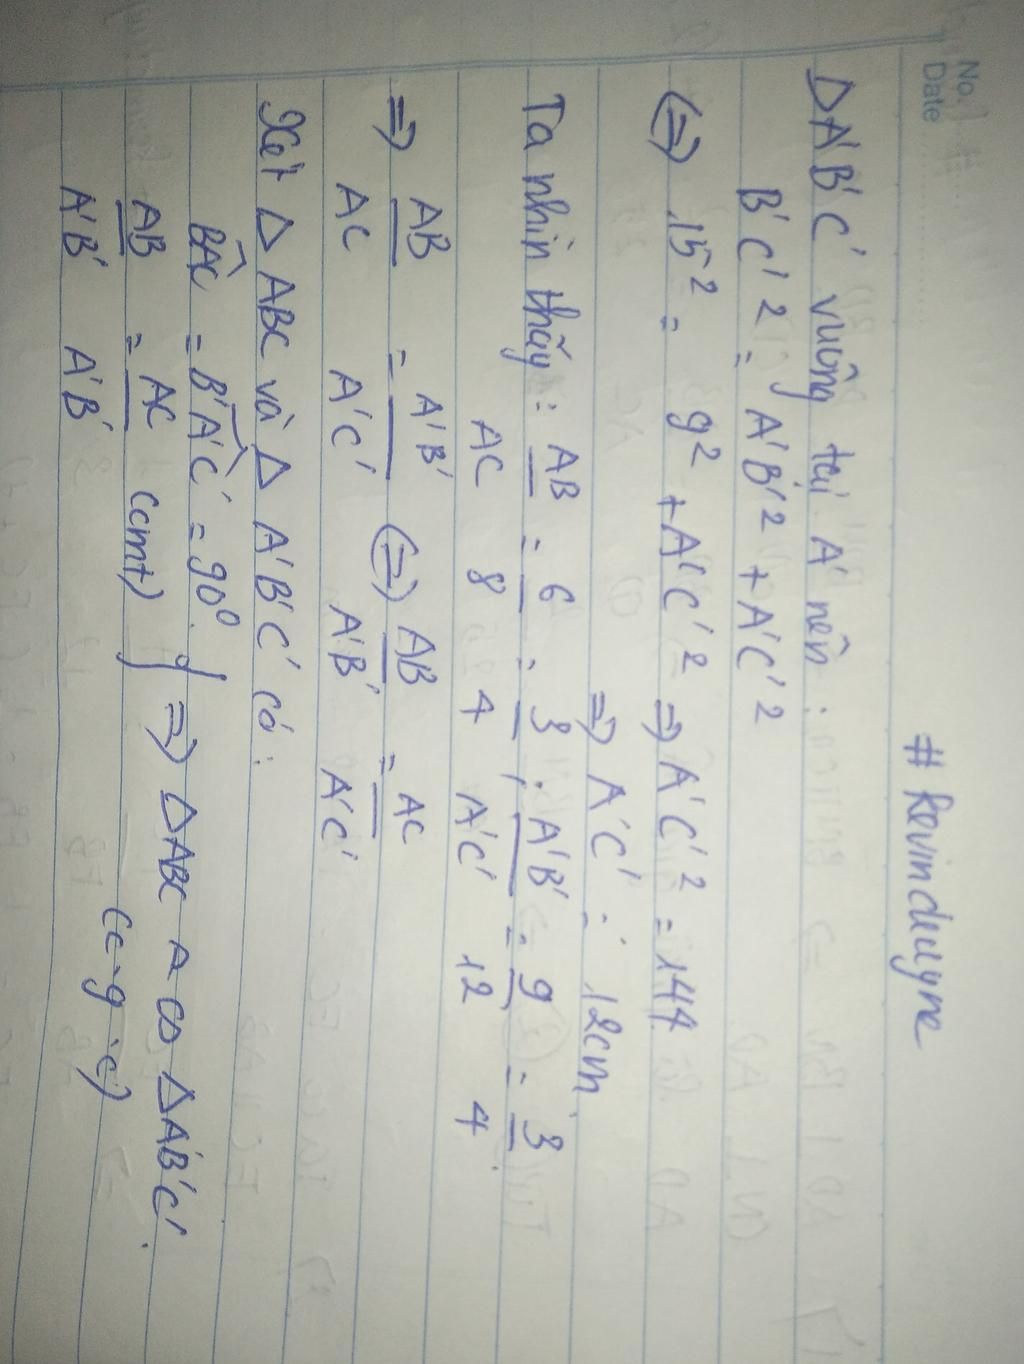 No.
Date
# Kevinduyne
ΔA'B'C' vuông tại A' nên :
B'C'² = A'B'² + A'C'²
(=) 15² = 9² + A'C'² => A'C'² = 144
=> A'C' = 12cm
Ta nhìn thấy : AB/AC = 6/8 = 3/4 ; A'B'/A'C' = 9/12 = 3/4
=> AB/AC = A'B'/A'C' (=) AB/A'B' = AC/A'C'
Xét Δ ABC và Δ A'B'C' có :
BÂC = B'Â'C' = 90°
AB/A'B' = AC/A'B' (cmt) } => ΔABC ∽ ΔA'B'C'.
(c-g-c)